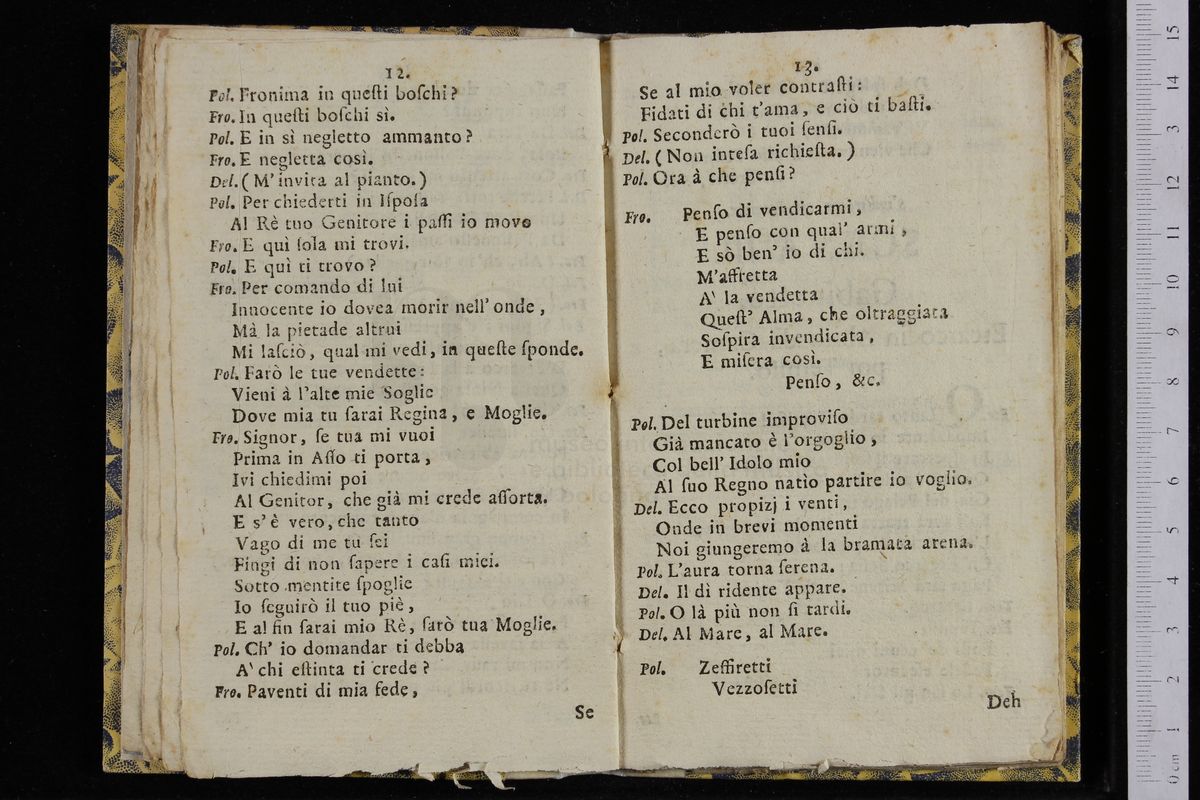 12.
Pol. Fronima in queſti boſchi?
Fro. In queſti boſchi sì.
Pol. E in sì negletto ammanto?
Fro. E negletta così.
Del. ( M' invita al pianto. )
Pol. Per chiederti in Iſpoſa
Al Rè tuo Genitore i paſſi io movo
Fro. E quì ſola mi trovi.
Pol. E quì ti trovo?
Fro. Per comando di lui
Innocente io dovea morir nell' onde,
Mà la pietade altrui
Mi laſciò, qual mi vedi, in queſte ſponde.
Pol. Farò le tue vendette:
Vieni à l'alte mie Soglie
Dove mia tu ſarai Regina, e Moglie.
Fro. Signor, ſe tua mi vuoi
Prima in Aſſo ti porta,
Ivi chiedimi poi
Al Genitor, che già mi crede aſſorta.
E s'è vero, che tanto
Vago di me tu ſei
Fingi di non ſapere i caſi miei.
Sotto mentite ſpoglie
Io ſeguirò il tuo piè,
E al fin ſarai mio Rè, ſarò tua Moglie.
Pol. Ch' io domandar ti debba
A' chi eſtinta ti crede?
Fro. Paventi di mia fede,
Se
13.
Se al mio voler contraſti:
Fidati di chi t'ama, e ciò ti baſti.
Pol. Seconderò i tuoi ſenſi.
Del. ( Non inteſa richieſta. )
Pol. Ora à che penſi?
Fro. Penſo di vendicarmi,
E penſo con qual' armi,
E sò ben' io di chi.
M'affretta
A' la vendetta
Queſt' Alma, che oltraggiata
Soſpira invendicata,
E miſera così.
Penſo, &c.
Pol. Del turbine improviſo
Già mancato è l'orgoglio,
Col bell' Idolo mio
Al ſuo Regno natìo partire io voglio.
Del. Ecco propizj i venti,
Onde in brevi momenti
Noi giungeremo à la bramata arena.
Pol. L'aura torna ſerena.
Del. Il dì ridente appare.
Pol. O là più non ſi tardi.
Del. Al Mare, al Mare.
Pol. Zeffiretti
Vezzoſetti
Deh
0 cm 1 2 3 4 5 6 7 8 9 10 11 12 13 14 15